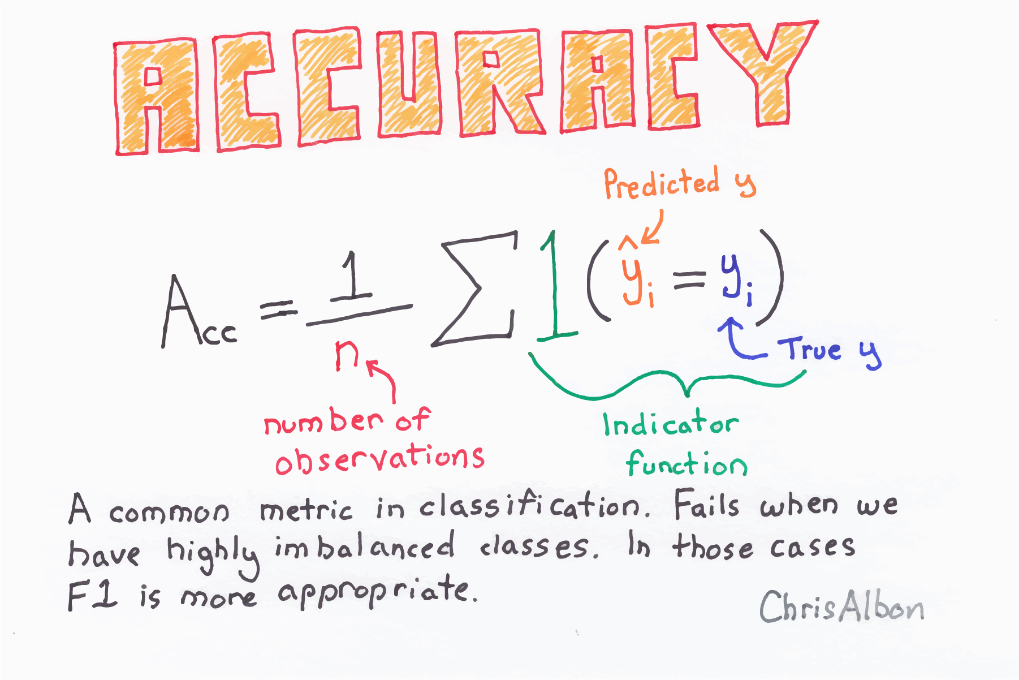 ACCURACY
Predicted y
Acc = 1/n Σ 1(ŷi = yi)
True y
number of
observations
Indicator
function
A common metric in classification. Fails when we
have highly imbalanced classes. In those cases
F1 is more appropriate.
ChrisAlbon